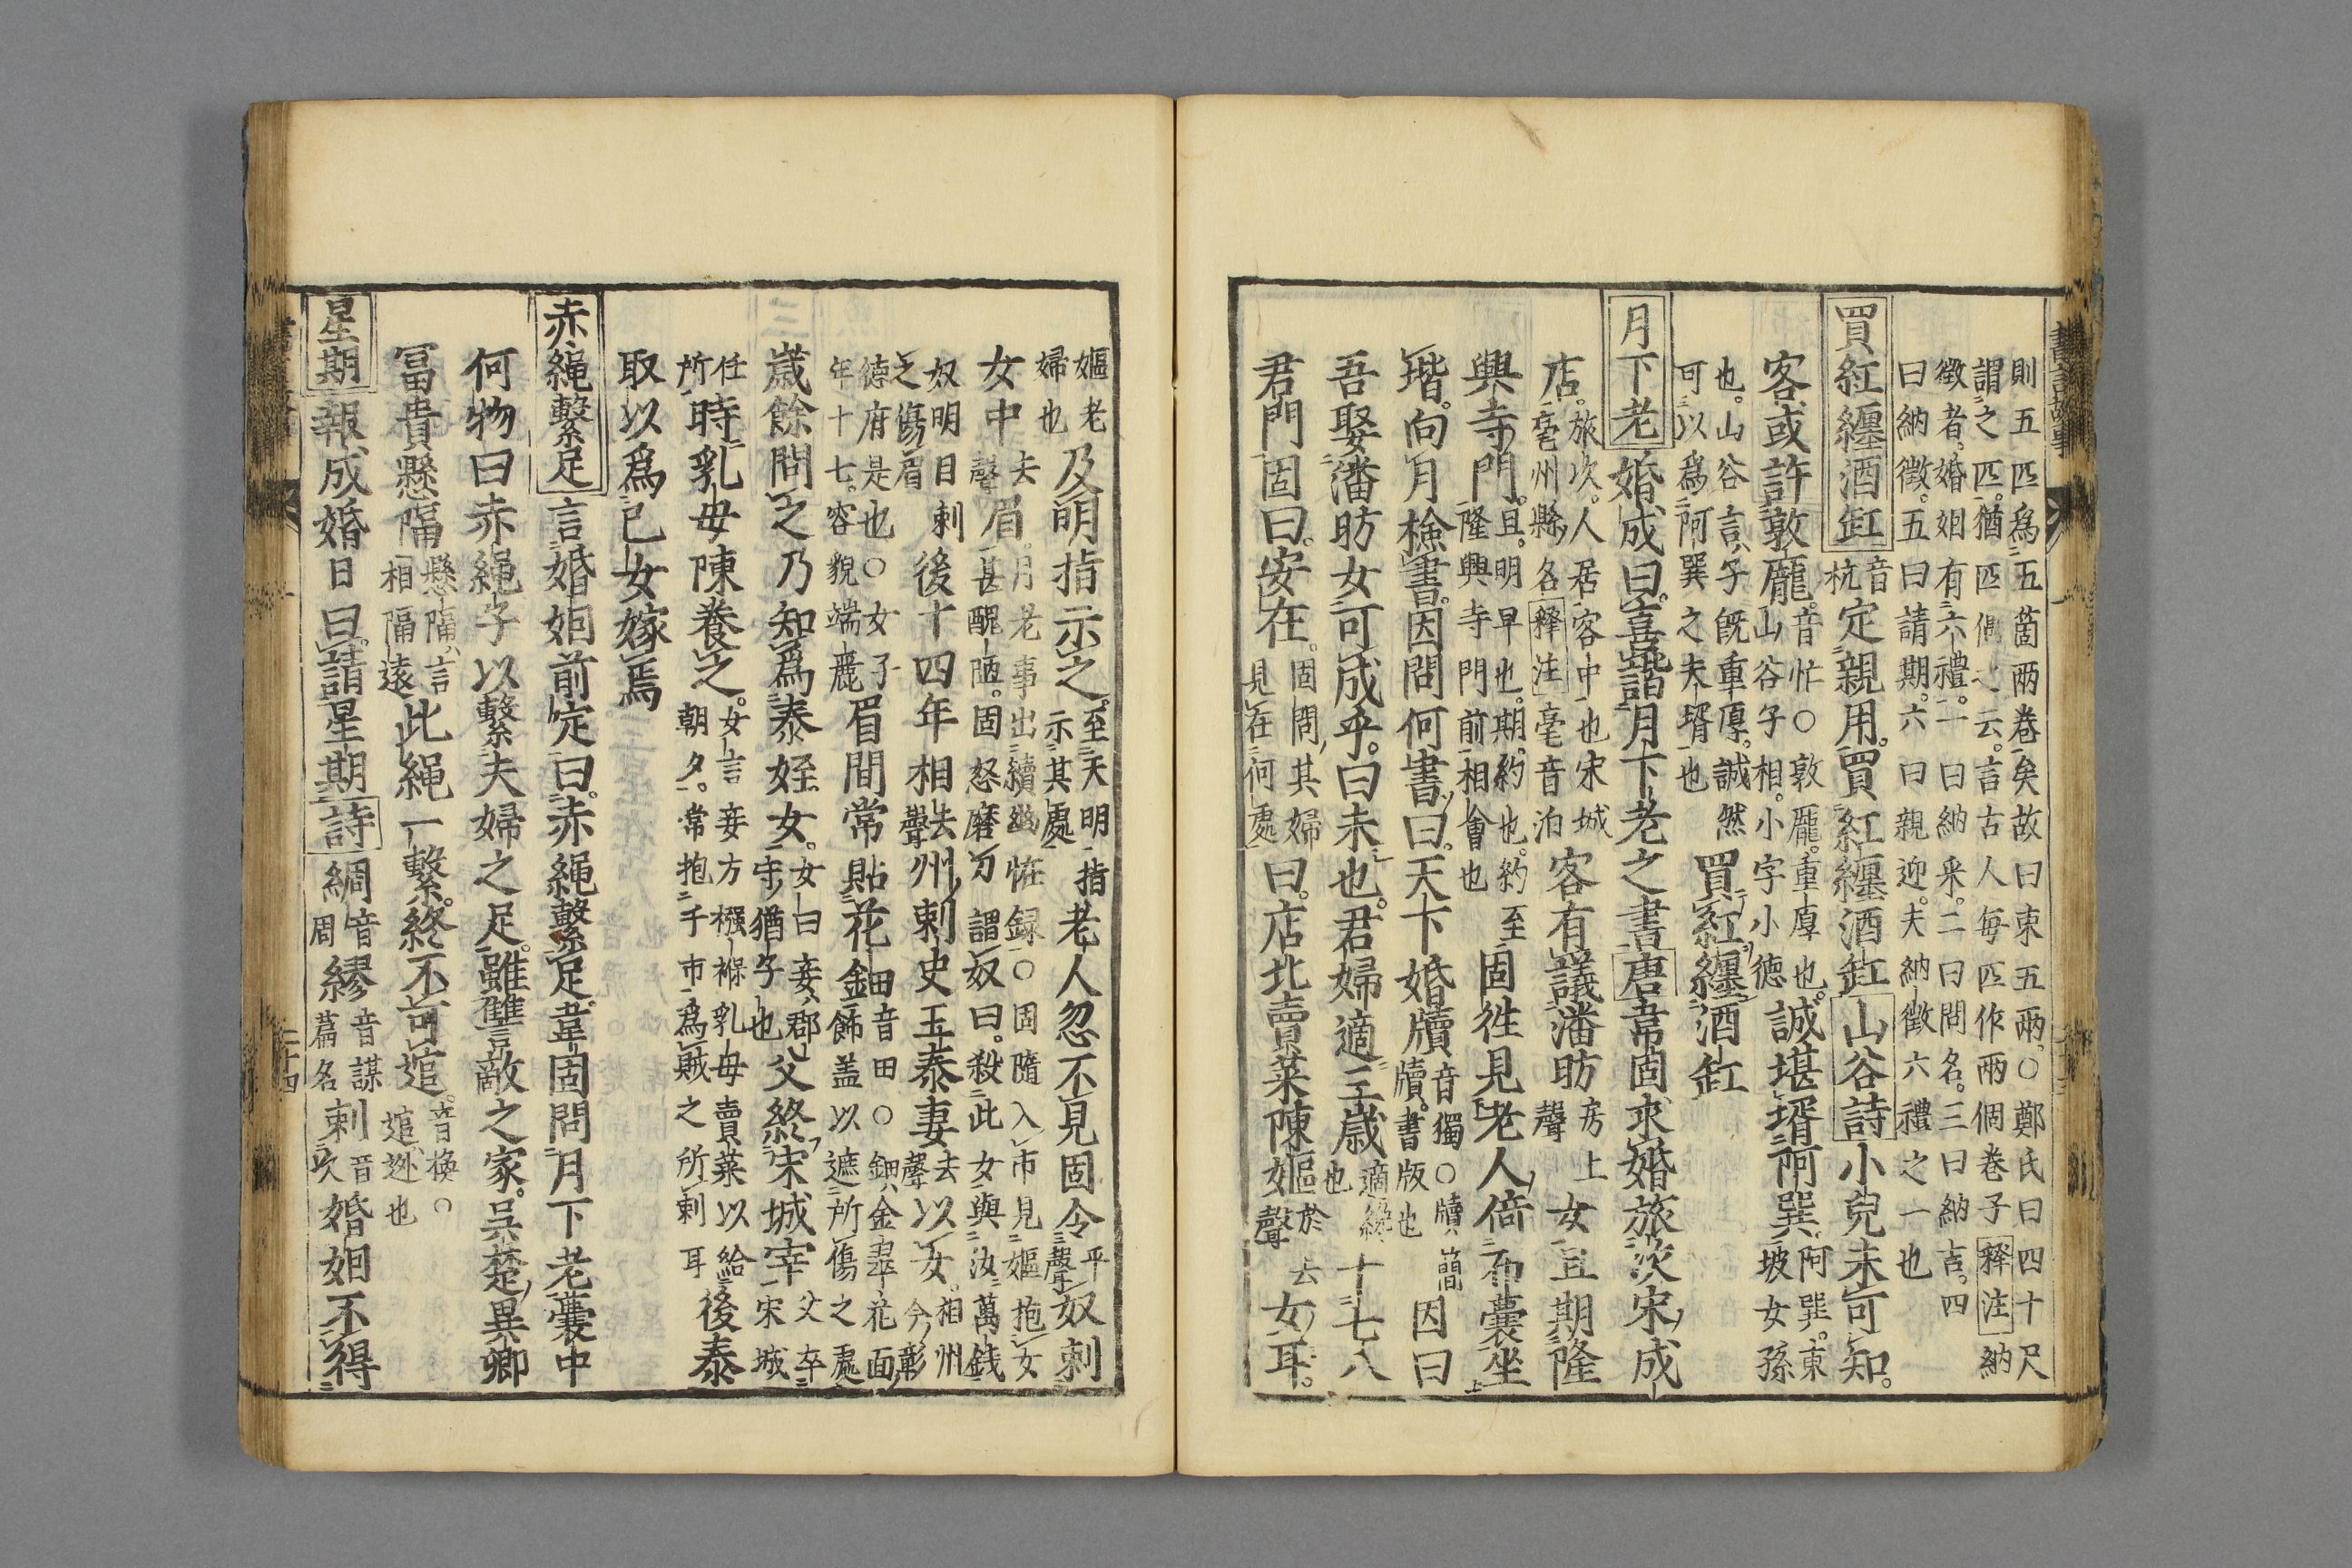 則五匹爲五箇兩卷矣故曰束五兩○鄭氏曰四十尺
謂之匹。猶匹偶之云。言古人每匹作兩個卷子釋注納
徵者。婚姻有六禮。一曰納采。二曰問名。三曰納吉。四
曰納徵。五曰請期。六曰親迎。夫納徵六禮之一也
買紅纏酒缸音杭定親用。買紅纏酒缸山谷詩小兒未可知。
客或許敦厖。音忙○敦厖。重厚也。山谷子相。小字小德誠堪壻阿巽阿巽。東坡女孫
也。山谷言、子既重厚。誠然可以爲阿巽之夫壻也買紅纏酒缸
月下老婚成曰。喜諧月下老之書唐韋固求婚旅次宋城
店。旅次。人居客中也宋城亳州縣名釋注亳音泊客有議潘昉房上聲女且期隆
興寺門。且。明早也。期。約也。約至隆興寺門前相會也固徃見老人倚布囊坐
堦。向月檢書。因問何書。曰。天下婚牘音獨○牘、簡牘。書版也因曰
吾娶潘昉女可成乎。曰未也。君婦適三歲適纔也十七八
君門固曰。安在。固問其婦見在何處曰。店北賣菜陳嫗於去聲女耳。
嫗老婦也及明指示之。至天明指示其處老人忽不見固令平聲奴刺
女中去聲眉。月老事出續幽恠録○固隨入市見嫗抱女甚醜陋。固怒磨刀謂奴曰。殺此女與汝萬錢
奴明日刺之傷眉後十四年相去聲州刺史王泰妻去聲以女。相州今彰
德府是也○女子年十七。容貌端麗眉間常貼花鈿音田○鈿、金翠花面飾盖以遮所傷之處
歲餘問之乃知爲泰姪女。女曰妾、郡守猶子也父終宋城宰父卒宋城
任所時乳母陳養之。女言妾方襁褓乳母賣菜以給朝夕。常抱于市爲賊之所刺耳後泰
取以爲己女嫁焉
赤繩繫足言婚姻前定曰。赤繩繫足韋固問月下老囊中
何物曰赤繩子以繫夫婦之足。雖讐敵之家。呉楚異卿
冨貴懸隔懸隔、言相隔遠此繩一繫。終不可逭。音換○逭、迯也
星期報成婚日曰。請星期詩綢音周繆音謀篇名刺音次婚姻不得